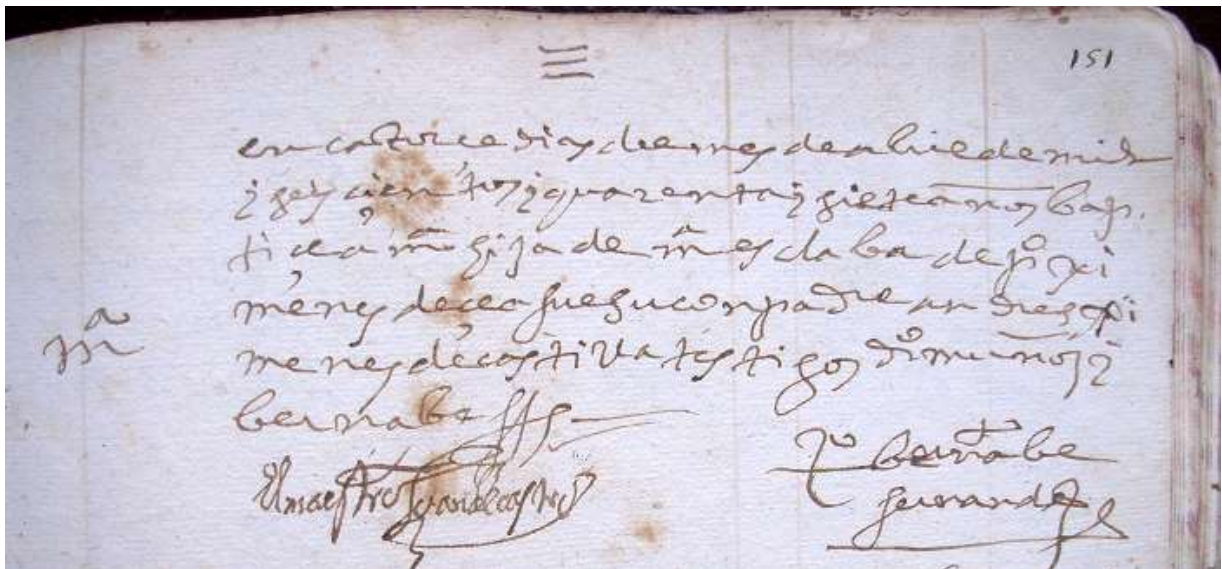 151
en catorce dias del mes de abril de mill
i seiscientos i quarenta i siete años bap-
tice a mª hija de mª esclaba de pº xi
menes de cea fue su conpadre andres xi
mª
menes de castilla testigos dº muños i
bernabe
El maestro Juan de castro
bernabe
hernandes